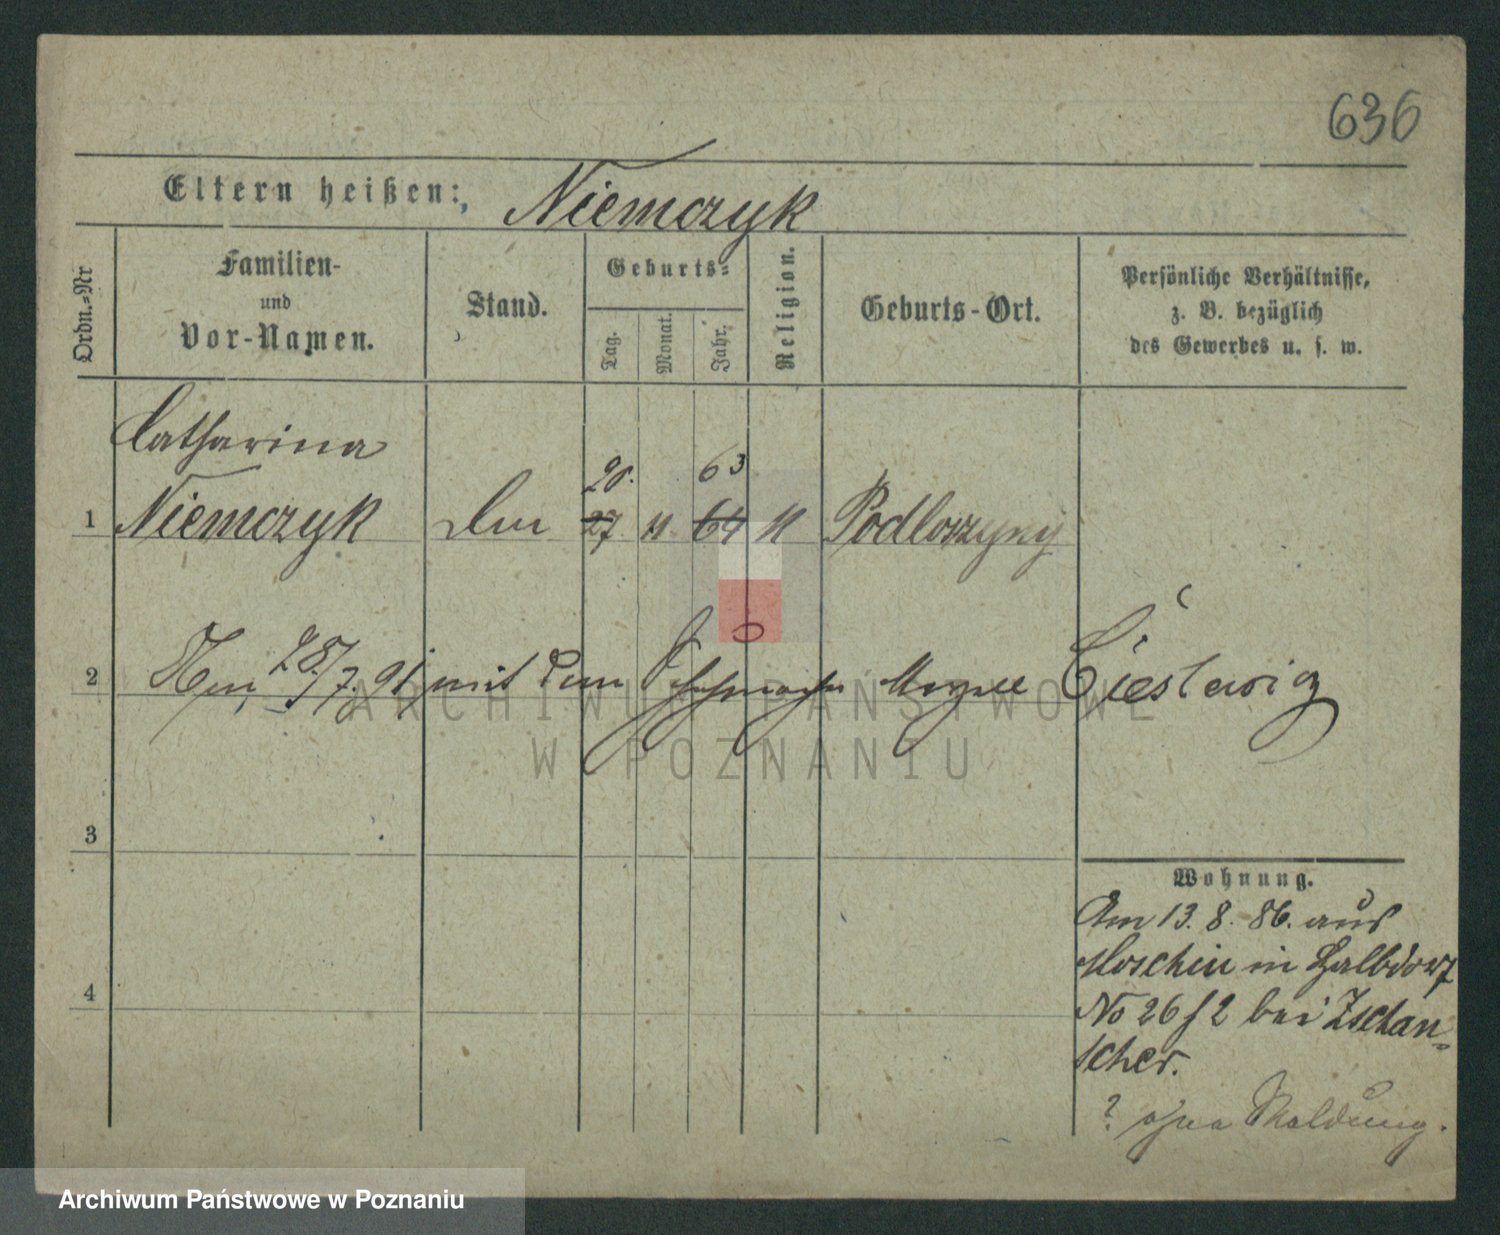 636
Eltern heißen: Niemczyk
Ordn.=Nr
Familien-
und
Vor-Namen.
Stand.
Geburts=
Tag.
Monat.
Jahr.
Religion.
Geburts-Ort.
Persönliche Verhältnisse,
z. B. bezüglich
des Gewerbes u. s. w.
Catharina
20. 63
1 Niemczyk 27. 11. 64 K
2 28/7. 91 mit dem Cieslewig
3
4
Wohnung.
Am 13. 8. 86. aus
Moschin in Halbdorf
No 26 f 2 bei Zschan=
scher.
? ohne Meldung.
ARCHIWUM PAŃSTWOWE
W POZNANIU
Archiwum Państwowe w Poznaniu